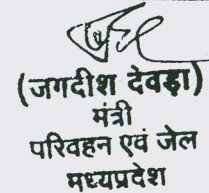 (जगदीश देवड़ा)
मंत्री
परिवहन एवं जेल
मध्यप्रदेश